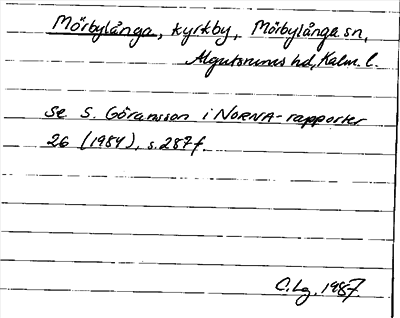 Mörbylånga, kyrkby, Mörbylånga sn,
Algutsrums hd, Kalm. l.
se S. Göransson i NORNA-rapporter
26 (1984), s. 287 f.
C. Lg. 1987.